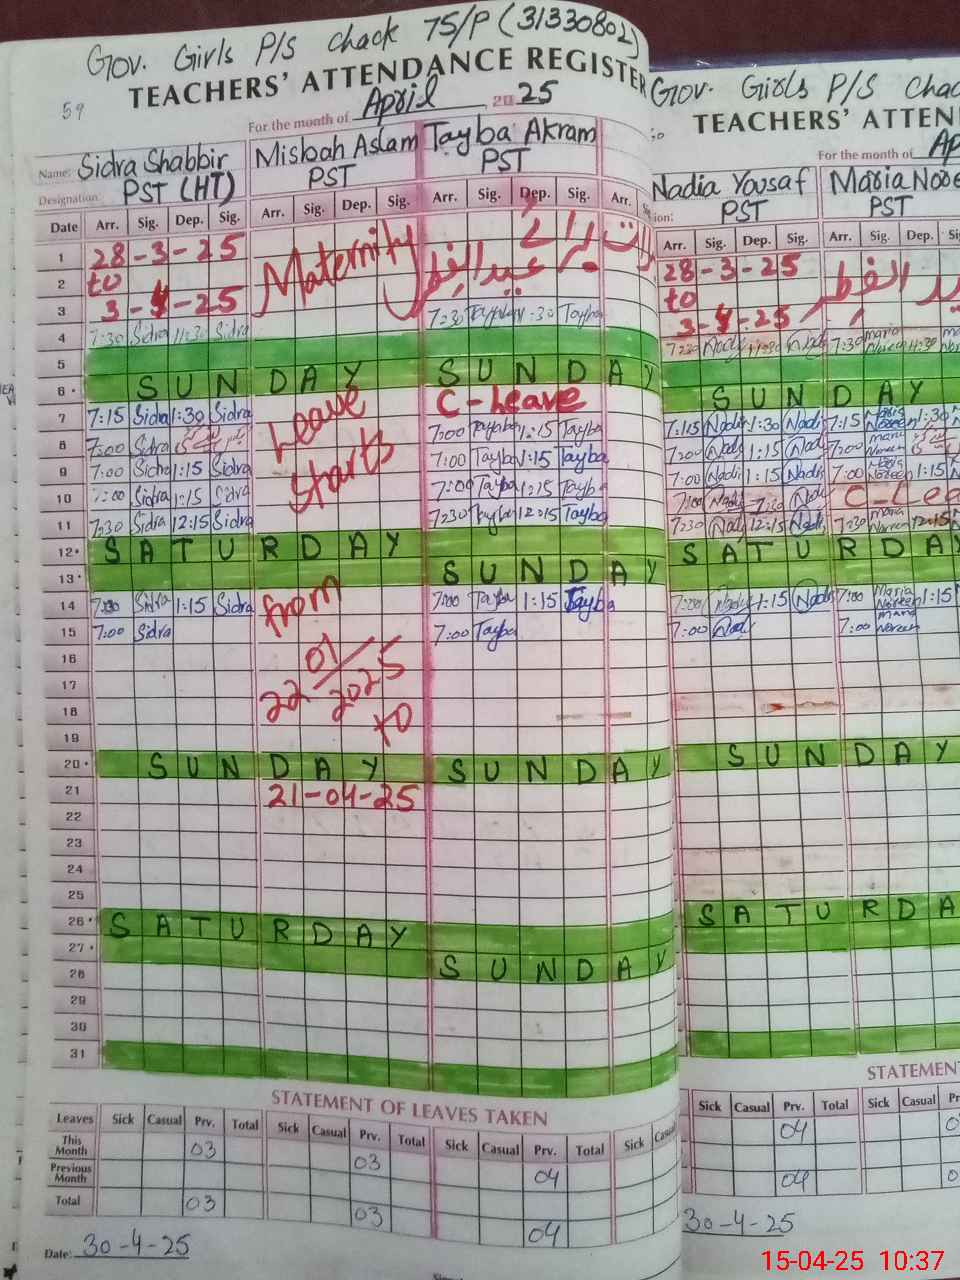 Gov. Girls P/S chack 75/P (31330802)
TEACHERS' ATTENDANCE REGISTER
59
For the month of April 2025
Name: Sidra Shabbir Misbah Aslam Tayba Akram
Designation: PST (HT) PST PST
Date Arr. Sig. Dep. Sig. Arr. Sig. Dep. Sig. Arr. Sig. Dep. Sig. Arr.
1 28-3-25
2 to Maternity
3 3-4-25 عید الفطر
4 7:30 Sidra 11:30 Sidra 7:30 Tayba 11:30 Tayba
5
6 SUNDAY SUNDAY
7 7:15 Sidra 1:30 Sidra Leave C-Leave
8 7:00 Sidra 7:00 Tayba 1:15 Tayba
9 7:00 Sidra 1:15 Sidra starts 7:00 Tayba 1:15 Tayba
10 7:00 Sidra 1:15 Sidra 7:00 Tayba 1:15 Tayba
11 7:30 Sidra 12:15 Sidra 7:30 Tayba 12:15 Tayba
12 SATURDAY
13 SUNDAY
14 7:00 Sidra 1:15 Sidra from 7:00 Tayba 1:15 Tayba
15 7:00 Sidra 7:00 Tayba
16
17 22/01/2025
18 to
19
20 SUNDAY SUNDAY
21 21-04-25
22
23
24
25
26 SATURDAY
27 SUNDAY
28
29
30
31
STATEMENT OF LEAVES TAKEN
Leaves Sick Casual Prv. Total Sick Casual Prv. Total Sick Casual Prv. Total Sick Casual
This Month 03 03
Previous Month 04
Total 03 03 04
Date: 30-4-25
Gov. Girls P/S Chac
TEACHERS' ATTEN
For the month of Ap
Nadia Yousaf Maria Nore
PST PST
Arr. Sig. Dep. Sig. Arr. Sig. Dep.
28-3-25
to
3-4-25
7:30 Nadi 11:30 Nadi 7:30 Maria Noreen 11:30
SUNDAY
7:15 Nadi 1:30 Nadi 7:15 Maria Noreen 1:30
7:00 Nadi 1:15 Nadi 7:00 Maria Noreen
7:00 Nadi 1:15 Nadi 7:00 Maria Noreen 1:15
7:00 Nadi Nadi C-Lea
7:30 Nadi 12:15 Nadi 7:30 Maria Noreen 12:15
SATURDAY
7:00 Nadi 1:15 Nadi 7:00 Maria Noreen 1:15
7:00 Nadi 7:00 Maria Noreen
SUNDAY
SATURDA
STATEMENT
Sick Casual Prv. Total Sick Casual
04
04
30-4-25
15-04-25 10:37